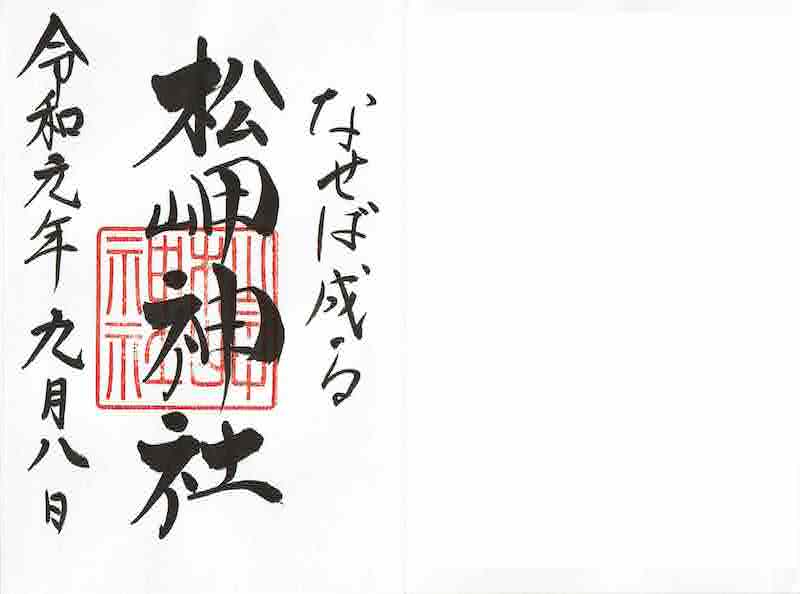 なせば成る
松岬神社
令和元年九月八日